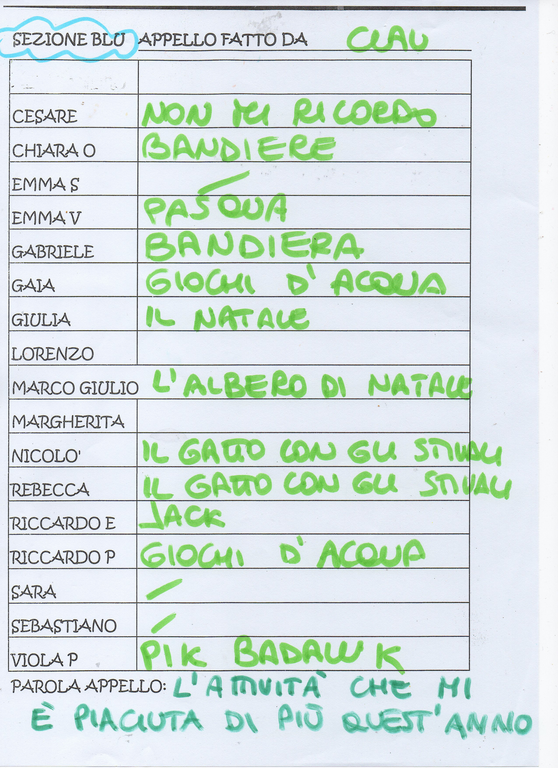 SEZIONE BLU APPELLO FATTO DA CLAU
CESARE NON MI RICORDO
CHIARA O BANDIERE
EMMA S /
EMMA V PASQUA
GABRIELE BANDIERA
GAIA GIOCHI D'ACQUA
GIULIA IL NATALE
LORENZO
MARCO GIULIO L'ALBERO DI NATALE
MARGHERITA
NICOLO' IL GATTO CON GLI STIVALI
REBECCA IL GATTO CON GLI STIVALI
RICCARDO E JACK
RICCARDO P GIOCHI D'ACQUA
SARA /
SEBASTIANO /
VIOLA P PIK BADALUK
PAROLA APPELLO: L'ATTIVITÀ CHE MI
È PIACIUTA DI PIÙ QUEST'ANNO